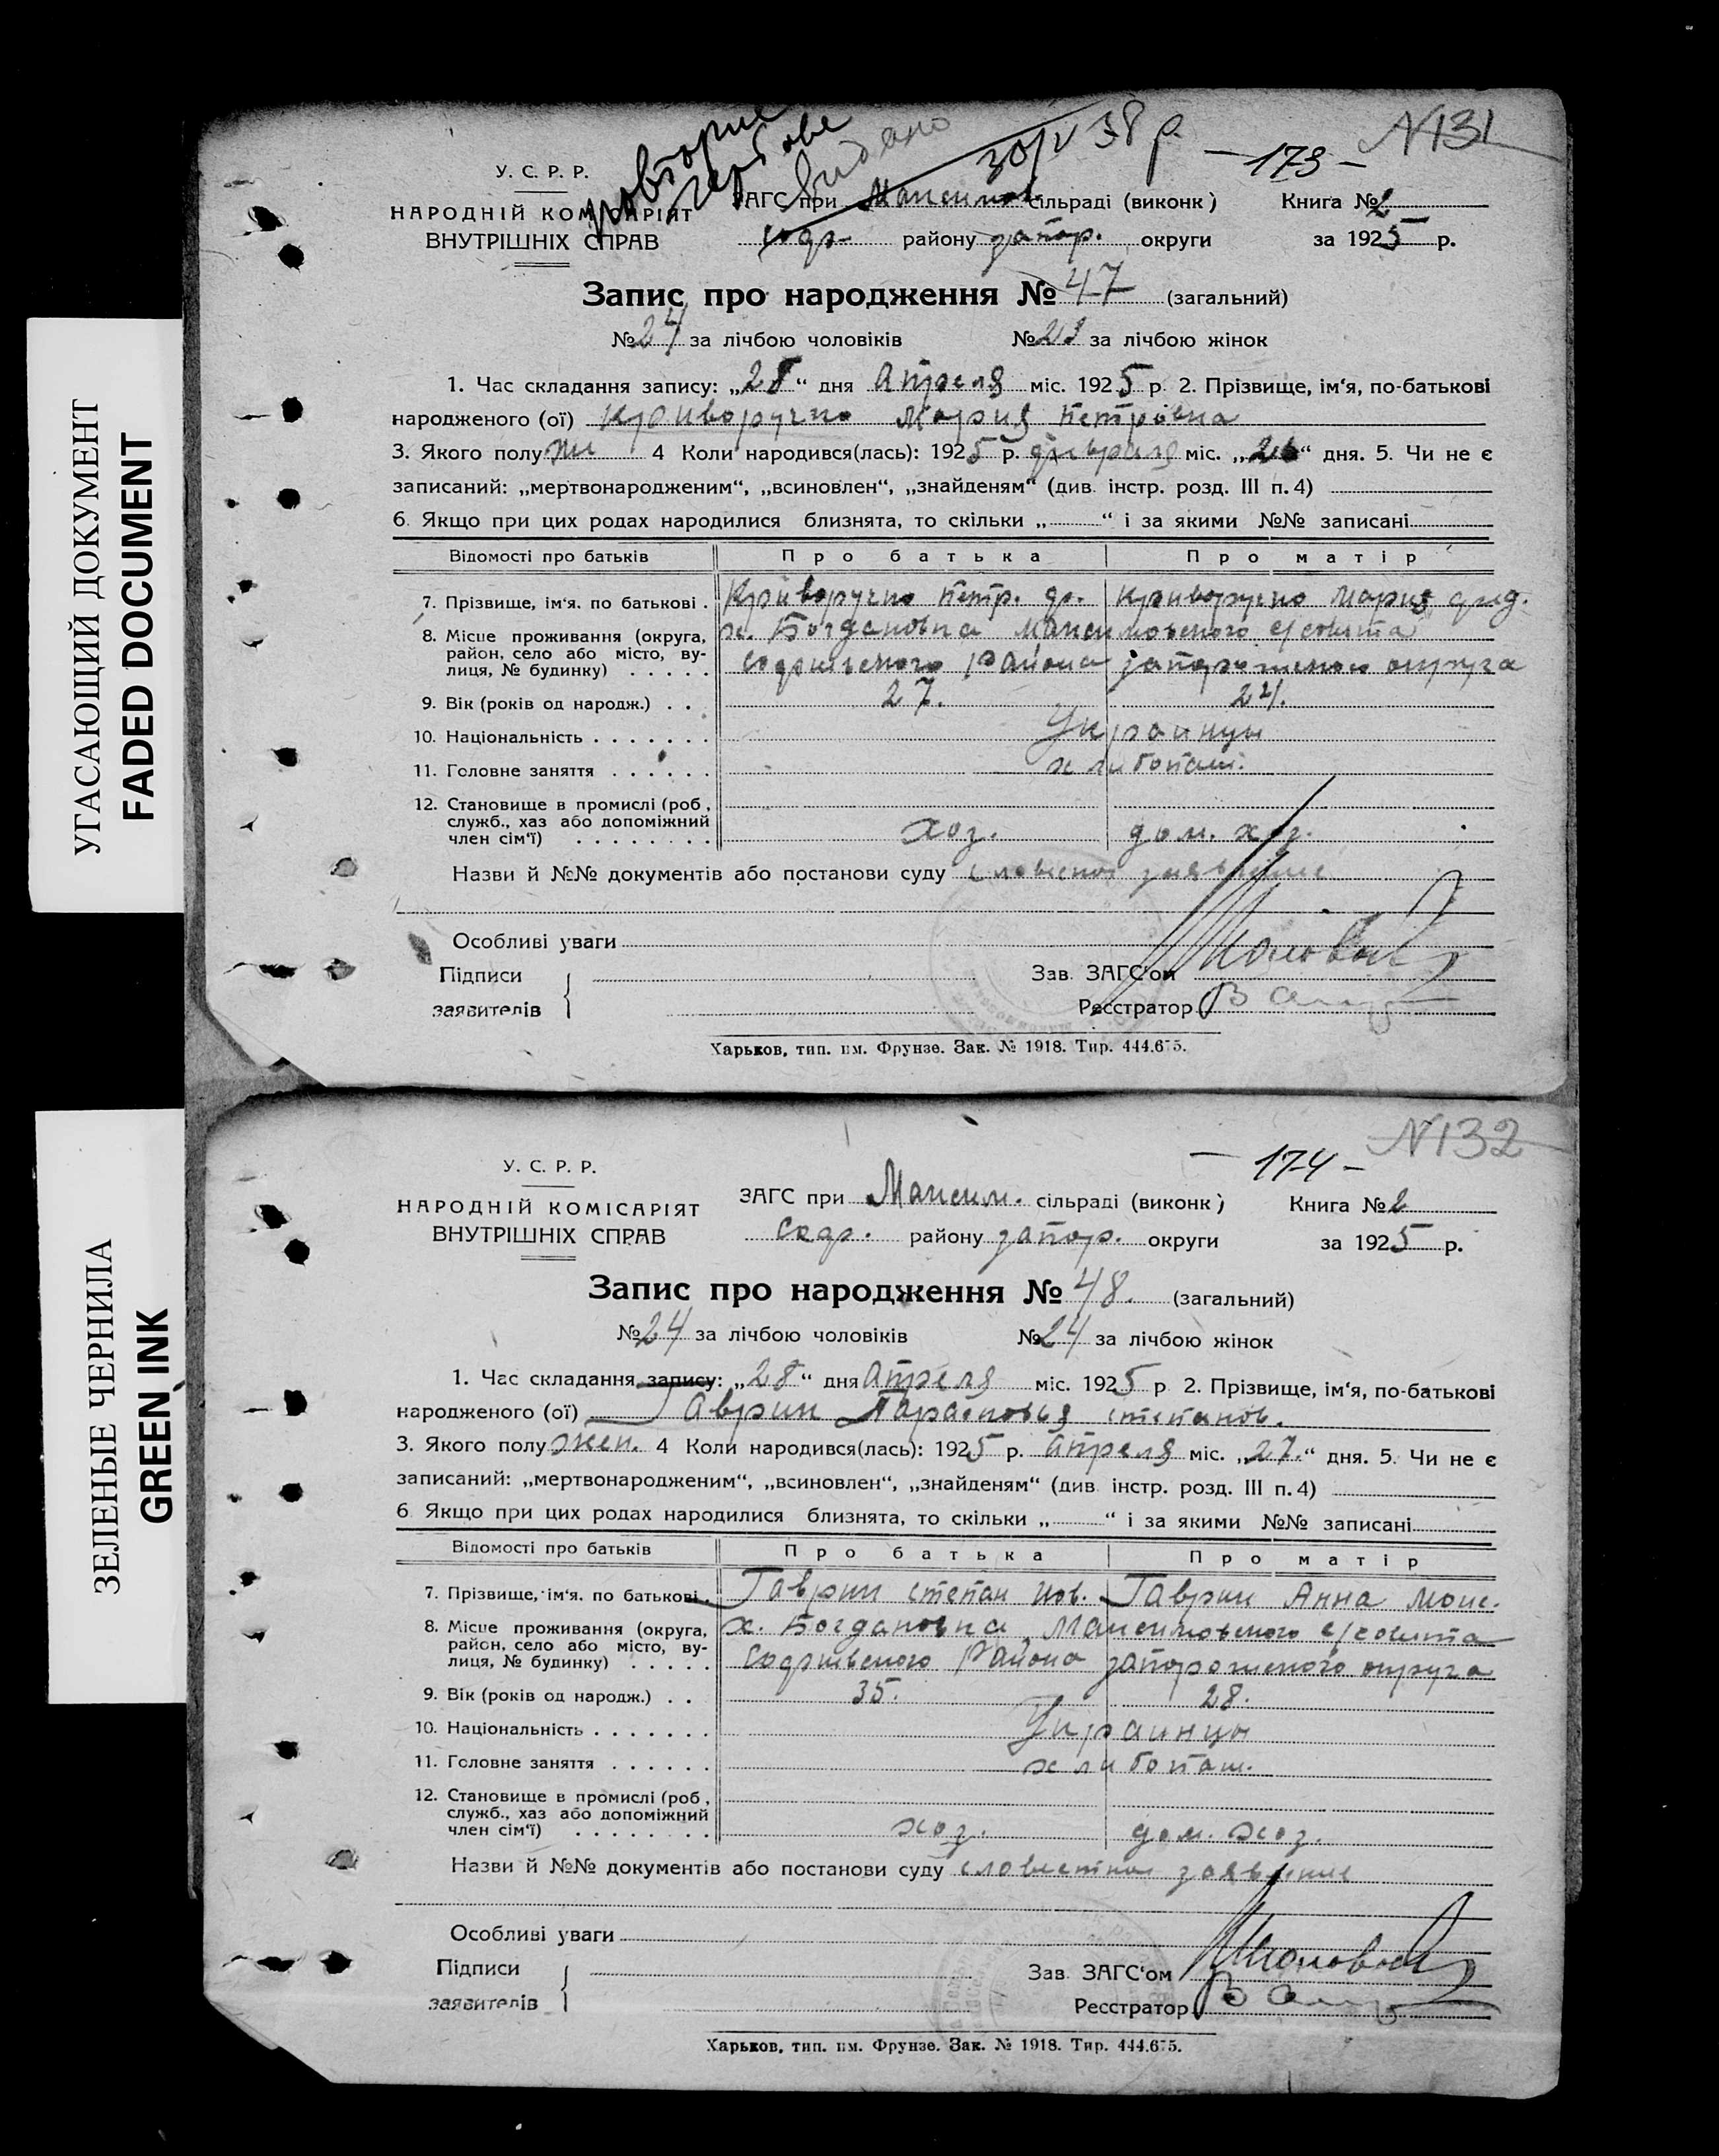 УГАСАЮЩИЙ ДОКУМЕНТ
FADED DOCUMENT
ЗЕЛЕНЫЕ ЧЕРНИЛА
GREEN INK
повторне
видано
30/V 38 р.
N131
— 173 —
У. С. Р. Р.
НАРОДНІЙ КОМІСАРІЯТ
ВНУТРІШНІХ СПРАВ
ЗАГС при Максимов сільраді (виконк)
Книга № 2
содр. району запор. округи
за 1925 р.
Запис про народження № 47 (загальний)
№ 24 за лічбою чоловіків № 23 за лічбою жінок
1. Час складання запису: „28“ дня Апреля міс. 1925 р 2. Прізвище, ім‘я, по-батькові
народженого (ої) Криворучко Мария Петровна
3. Якого полу жи 4 Коли народився(лась): 1925 р. февраля міс. „26“ дня. 5. Чи не є
записаний: „мертвонародженим“, „всиновлен“, „знайденям“ (див. інстр. розд. III п. 4)
6. Якщо при цих родах народилися близнята, то скільки „ “ і за якими №№ записані
Відомості про батьків Про батька Про матір
7. Прізвище, ім‘я. по батькові . Криворучко Петр. Криворучко Мария
8. Місце проживання (округа, х. Богдановка Максимовского с/совита
район, село або місто, ву-
лиця, № будинку) . . . . . Района запорожского округа
9. Вік (років од народж.) . . 27. 24.
10. Національність . . . . . . . Украинцы
11. Головне заняття . . . . . . хлибопаш.
12. Становище в промислі (роб.,
служб., хаз або допоміжний
член сім‘ї) . . . . . . . . хоз. дом. хоз.
Назви й №№ документів або постанови суду словесное заявление
Особливі уваги
Підписи
заявителів
Зав. ЗАГС‘ом
Реєстратор
Харьков, тип. им. Фрунзе. Зак. № 1918. Тир. 444.675.
N132
— 174 —
У. С. Р. Р.
НАРОДНІЙ КОМІСАРІЯТ
ВНУТРІШНІХ СПРАВ
ЗАГС при Максим. сільраді (виконк)
Книга № 2
содр. району запор. округи
за 1925 р.
Запис про народження № 48. (загальний)
№ 24 за лічбою чоловіків № 24 за лічбою жінок
1. Час складання запису: „28“ дня Апреля міс. 1925 р 2. Прізвище, ім‘я, по-батькові
народженого (ої) Гаврик Парасковья степанов.
3. Якого полу жен. 4 Коли народився(лась): 1925 р. Апреля міс. „27.“ дня. 5. Чи не є
записаний: „мертвонародженим“, „всиновлен“, „знайденям“ (див. інстр. розд. III п. 4)
6 Якщо при цих родах народилися близнята, то скільки „ “ і за якими №№ записані
Відомості про батьків Про батька Про матір
7. Прізвище, ім‘я. по батькові . Гаврик степан Гаврик Анна Моис.
8. Місце проживання (округа, х. Богдановка Максимовского с/совита
район, село або місто, ву-
лиця, № будинку) . . . . . Района запорожского округа
9. Вік (років од народж.) . . 35. 28.
10. Національність . . . . . . . Украинцы
11. Головне заняття . . . . . . хлибопаш.
12. Становище в промислі (роб.,
служб., хаз або допоміжний
член сім‘ї) . . . . . . . . хоз. дом. хоз.
Назви й №№ документів або постанови суду словестное заявление
Особливі уваги
Підписи
заявителів
Зав. ЗАГС‘ом
Реєстратор
Харьков, тип. им. Фрунзе. Зак. № 1918. Тир. 444.675.